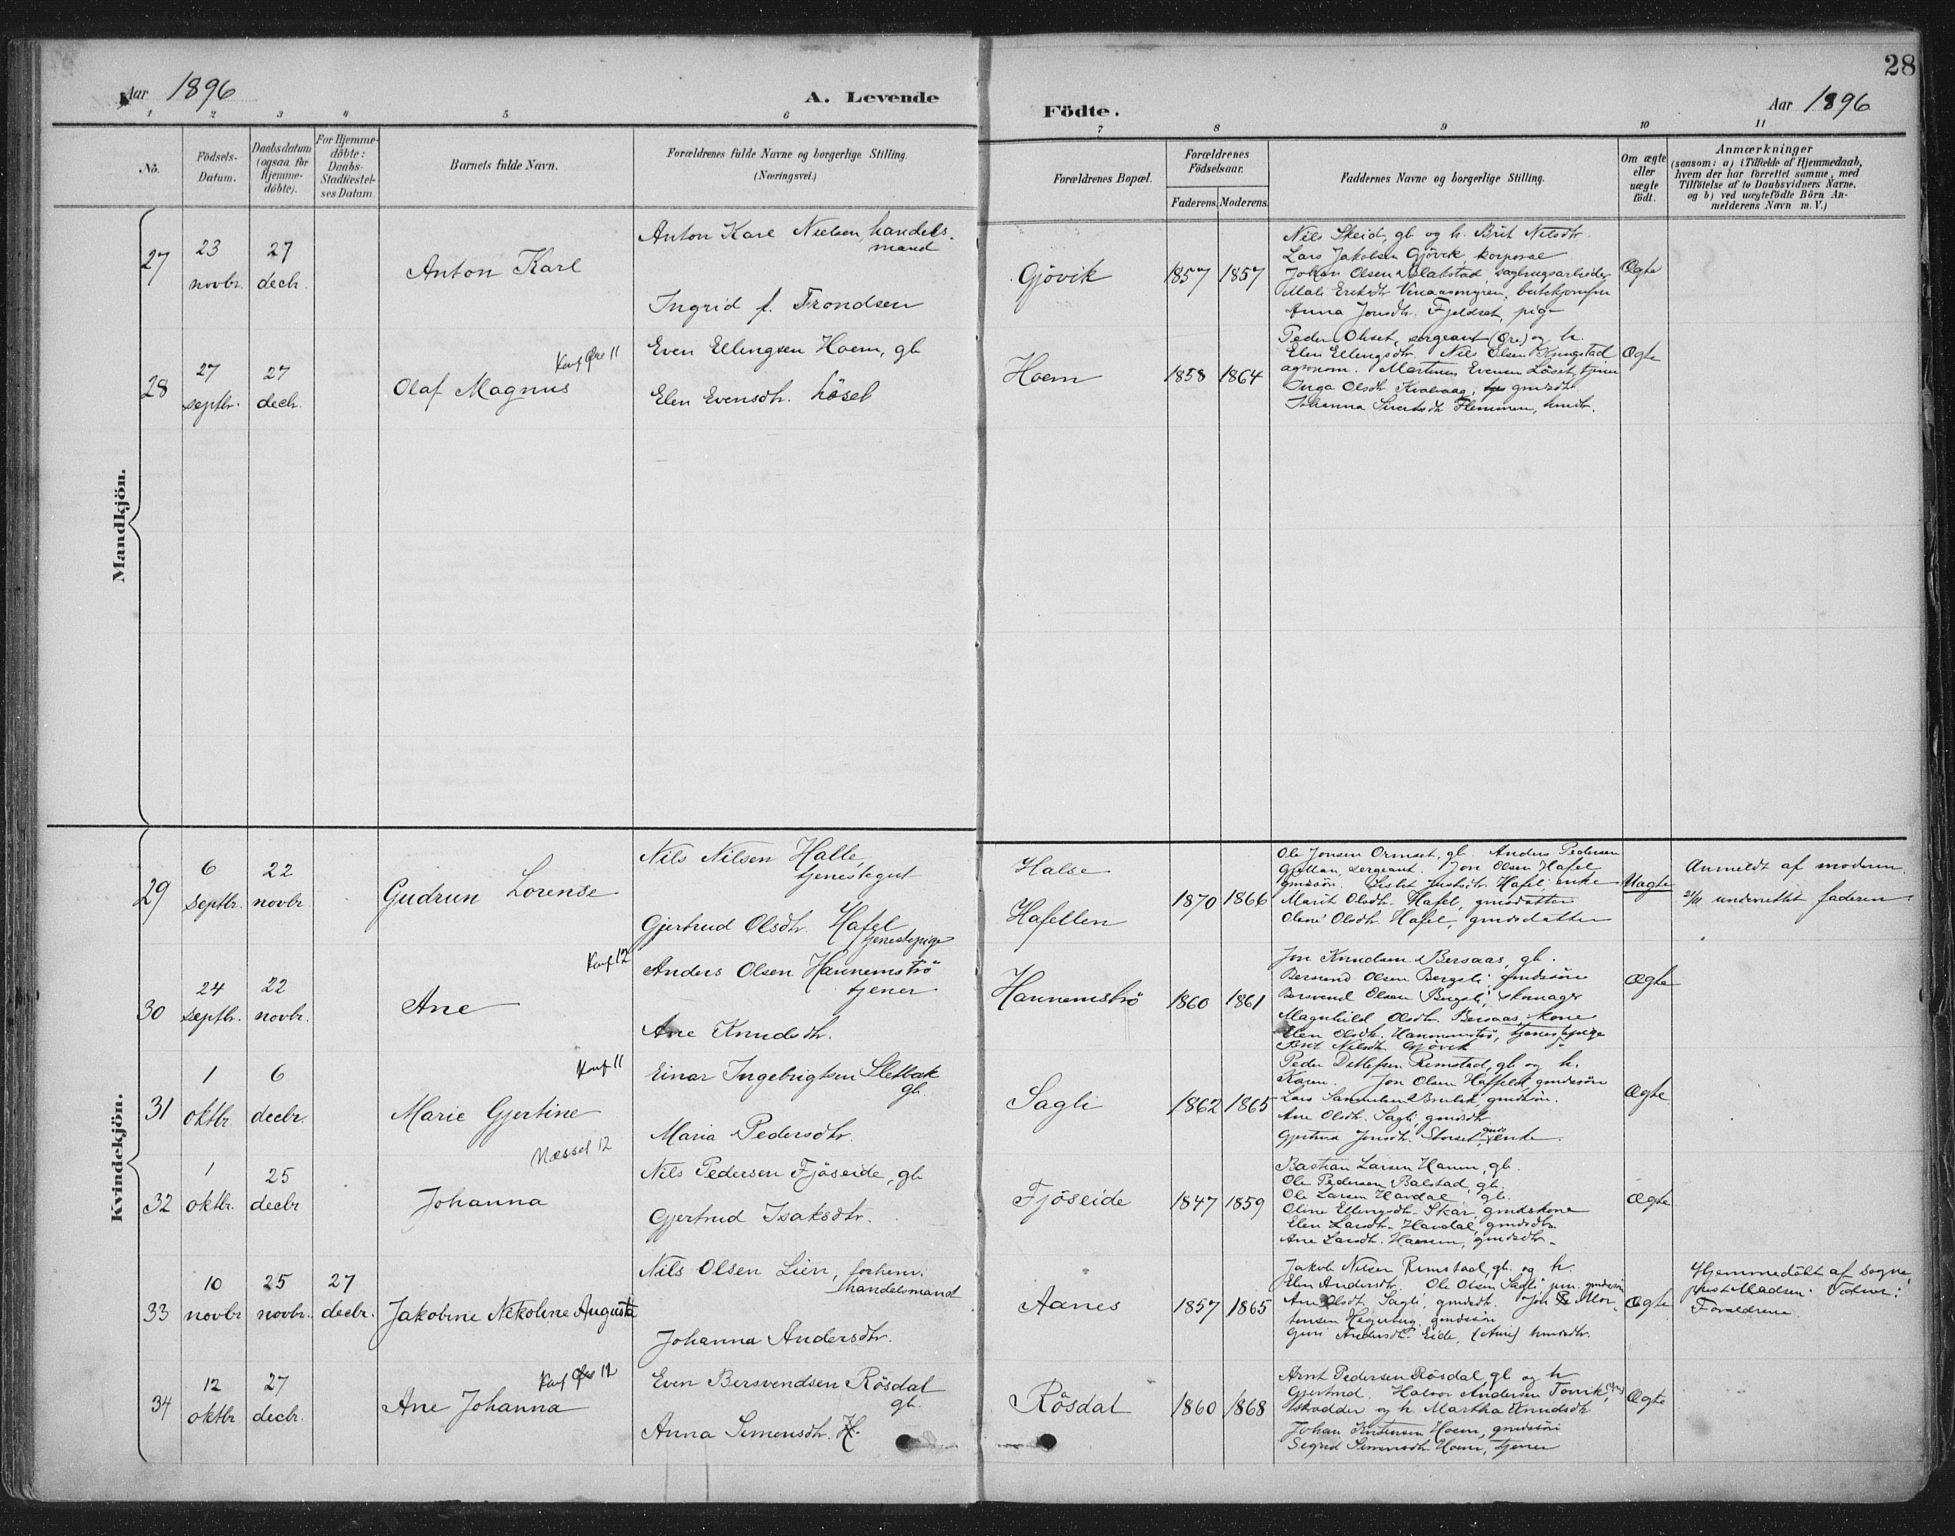 28
Aar 1896
A. Levende
Födte.
Aar 1896
1 2 3 4 5 6 7 8 9 10 11
No.
Födsels-Datum.
Daabsdatum (ogsaa for Hjemmedöbte).
For Hjemmedöbte: Daabs-Stadfæstelses Datum.
Barnets fulde Navn.
Forældrenes fulde Navne og borgerlige Stilling.
(Næringsvei.)
Forældrenes Bopæl.
Forældrenes Födselsaar.
Faderens. Moderens.
Faddernes Navne og borgerlige Stilling.
Om ægte eller uægte födt.
Anmærkninger
(saasom: a) i Tilfælde af Hjemmedaab, hvem der har forrettet samme, med Tilföielse af to Daabsvidners Navne, og b) ved uægtefödte Börn Anmelderens Navn m. V.)
Mandkjön.
27
23 novbr.
27 decbr.
Anton Karl
Anton Karl Nielsen, handelsmand
Ingrid f. Trondsen
Gjövik
1857 1857
Nils Skeid, gb og h. Brit Nilsdtr.
Lars Jakobsen Gjövik, korporal
Johan Olsen Slakstad sagbrugsarbeider
Mali Eriksdtr.
Anna Jonsdtr. Fjeldset, pige
Ægte
28
27 septbr.
27 decbr.
Konf Öre 11
Olaf Magnus
Even Ellingsen Hoem, gb
Elen Evensdtr. Löset
Hoem
1858 1864
Peder Olset, sergeant (Öre) og h.
Elen Ellingsdtr. Nils Olsen Kringstad
agronom. Martinus Evensen Löset, tjener
Inga Olsdtr Kvalvaag, gmdsdtr.
Johanna Sivertsdtr Flemmen, hmdtr.
Ægte
Kvindekjön.
29
6 septbr.
22 novbr.
Gudrun Lorense
Nils Nilsen Halle, tjenestegut
Gjertrud Olsdtr. Hafel tjenestepige
Halse
Hafellen
1870 1866
Ole Jonsen Ormset, gb. Anders Pedersen
sergeant. Jon Olsen Hafel
gmdssön. Hafel, enke
Marit Olsdtr. Hafel, gmdsdatter
Oline Olsdtr. Hafel, gmdsdatter
Uægte
Anmeldt af moderen.
underrettet faderen.
30
24 septbr.
22 novbr.
Konf 12
Ane
Anders Olsen Hannemströ tjener
Ane Knudsdtr.
Hannemströ
1860 1861
Jon Knudsen Bersaas, gb.
Bersvend Olsen Bergsli, gmdssön
Bersvend Olsen Bergsli, skomager
Magnhild Olsdtr. Bersaas, kone
Elen Olsdtr. Hannemströ, tjenestepige
Brit Nilsdtr. Gjövik
Ægte
31
1 oktbr.
6 decbr.
Konf 11
Marie Gjertine
Einar Ingebrigtsen Sletbak gb.
Maria Pedersdtr.
Sagli
1862 1865
Peder Detlefsen Remstad, gb og h.
Karen. Jon Olsen Haffeld, gmdssön
Lars Samuelsen gmdssön.
Ane Olsdtr. Sagli, gmdsdtr.
Gjertrud Jonsdtr. Storset, gmds enke.
Ægte
32
1 oktbr.
25 decbr
Næsset 12
Johanna
Nils Pedersen Fjöseide, gb
Gjertrud Isaksdtr.
Fjöseide
1847 1859
Bastian Larsen Hanem, gb.
Ole Pedersen Balstad, gb.
Ole Larsen Havdal, gb.
Oline Ellingsdtr. Skar, gmdskone
Elen Larsdtr. Havdal, gmdsdtr.
Ane Larsdtr. gmdsdtr.
Ægte
33
10 novbr
25 novbr.
27 decbr.
Jakobine Nikoline Augusta
Nils Olsen Lien, forhenv. handelsmand
Johanna Andersdtr.
Aanes
1857 1865
Jakob Nilsen Remstad, gb. og h.
Elen Andersdtr. Ole Olsen Sagli jun. gmdssön
Ane Olsdtr. Sagli, gmdsdtr. Jon Mor-
tensen Hegerberg, gmdssön
Guri Andersdtr. Eide, (Aure) hmdsdtr.
Ægte
Hjemmedöbt af sogne-
præst Madsen. Vidner:
Forældrene
34
12 oktbr
27 decbr.
Konf Öre 12
Ane Johanna
Even Bersvendsen Rösdal gb.
Anna Simonsdtr. H.
Rösdal
1860 1868
Arnt Pedersen Rösdal gb og h
Gjertrud. Halvor Andersen Torvik, (Öre)
skrædder og h Martha Knudsdtr
Johan Kristensen Hoem, gmdssön
Sigrid Simonsdtr. Hoem, tjener
Ægte